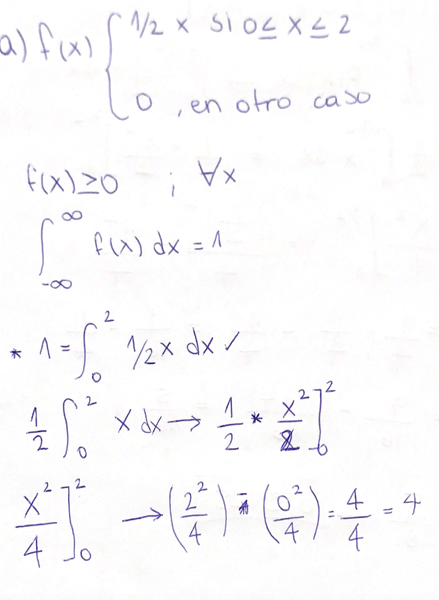 a) f(x) { 1/2 x si 0 ≤ x ≤ 2
0 , en otro caso
f(x) ≥ 0 ; ∀x
∫_{-∞}^{∞} f(x) dx = 1
* 1 = ∫_0^2 1/2 x dx ✓
1/2 ∫_0^2 x dx → 1/2 * x²/2 ]_0^2
x²/4 ]_0^2 → (2²/4) - (0²/4) = 4/4 = 4